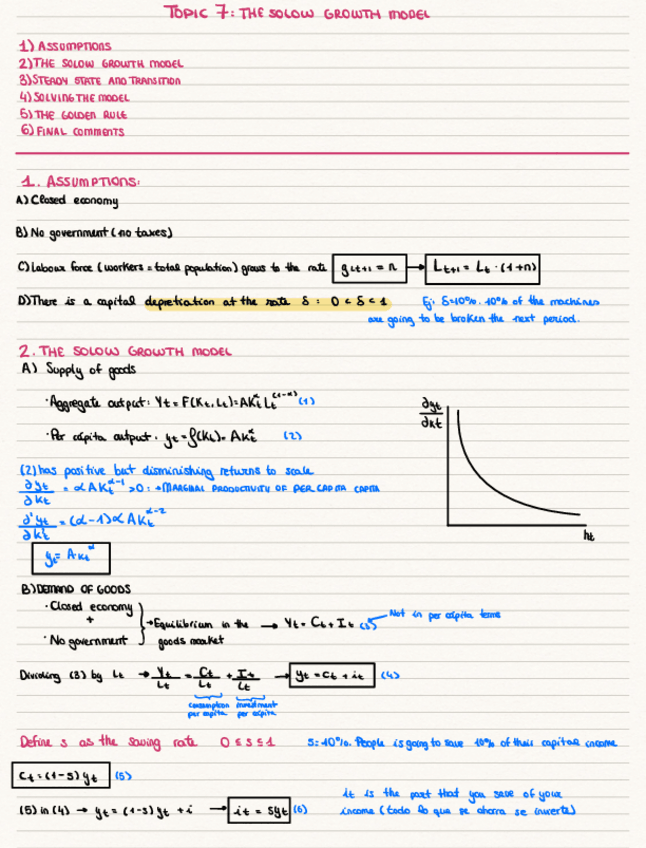 TOPIC 7: THE SOLOW GROWTH MODEL
1) ASSUMPTIONS
2) THE SOLOW GROWTH MODEL
3) STEADY STATE AND TRANSITION
4) SOLVING THE MODEL
5) THE GOLDEN RULE
6) FINAL COMMENTS
1. ASSUMPTIONS:
A) Closed economy
B) No government (no taxes)
C) Labour force (workers = total population) grows to the rate g_Lt+1 = n → L_t+1 = L_t · (1+n)
D) There is a capital depretiation at the rate δ : 0 < δ < 1 Ej: δ=10%. 10% of the machines
are going to be broken the next period.
2. THE SOLOW GROWTH MODEL
A) Supply of goods
· Aggregate output: Y_t = F(K_t, L_t) = AK_t^α L_t^(1-α) (1)
· Per cápita output: y_t = f(k_t) = Ak_t^α (2)
∂y_t/∂k_t
k_t
(2) has positive but disminishing returns to scale
∂y_t/∂k_t = αAk_t^α-1 > 0 : → MARGINAL PRODUCTIVITY OF PER CAPITA CAPITA
∂²y_t/∂k_t² = (α-1)αAk_t^α-2
y_t = A·k_t^α
B) DEMAND OF GOODS
· Closed economy
+
· No government
→ Equilibrium in the goods market → Y_t = C_t + I_t (3) Not in per cápita terms
Dividing (3) by L_t → Y_t/L_t = C_t/L_t + I_t/L_t → y_t = c_t + i_t (4)
consumption per capita investment per cápita
Define s as the saving rate 0 ≤ s ≤ 1 S=10%. People is going to save 10% of their capital income
c_t = (1-s) y_t (5)
(5) in (4) → y_t = (1-s) y_t + i → i_t = sy_t (6)
it is the part that you save of your
income (todo lo que se ahorra se invierte)